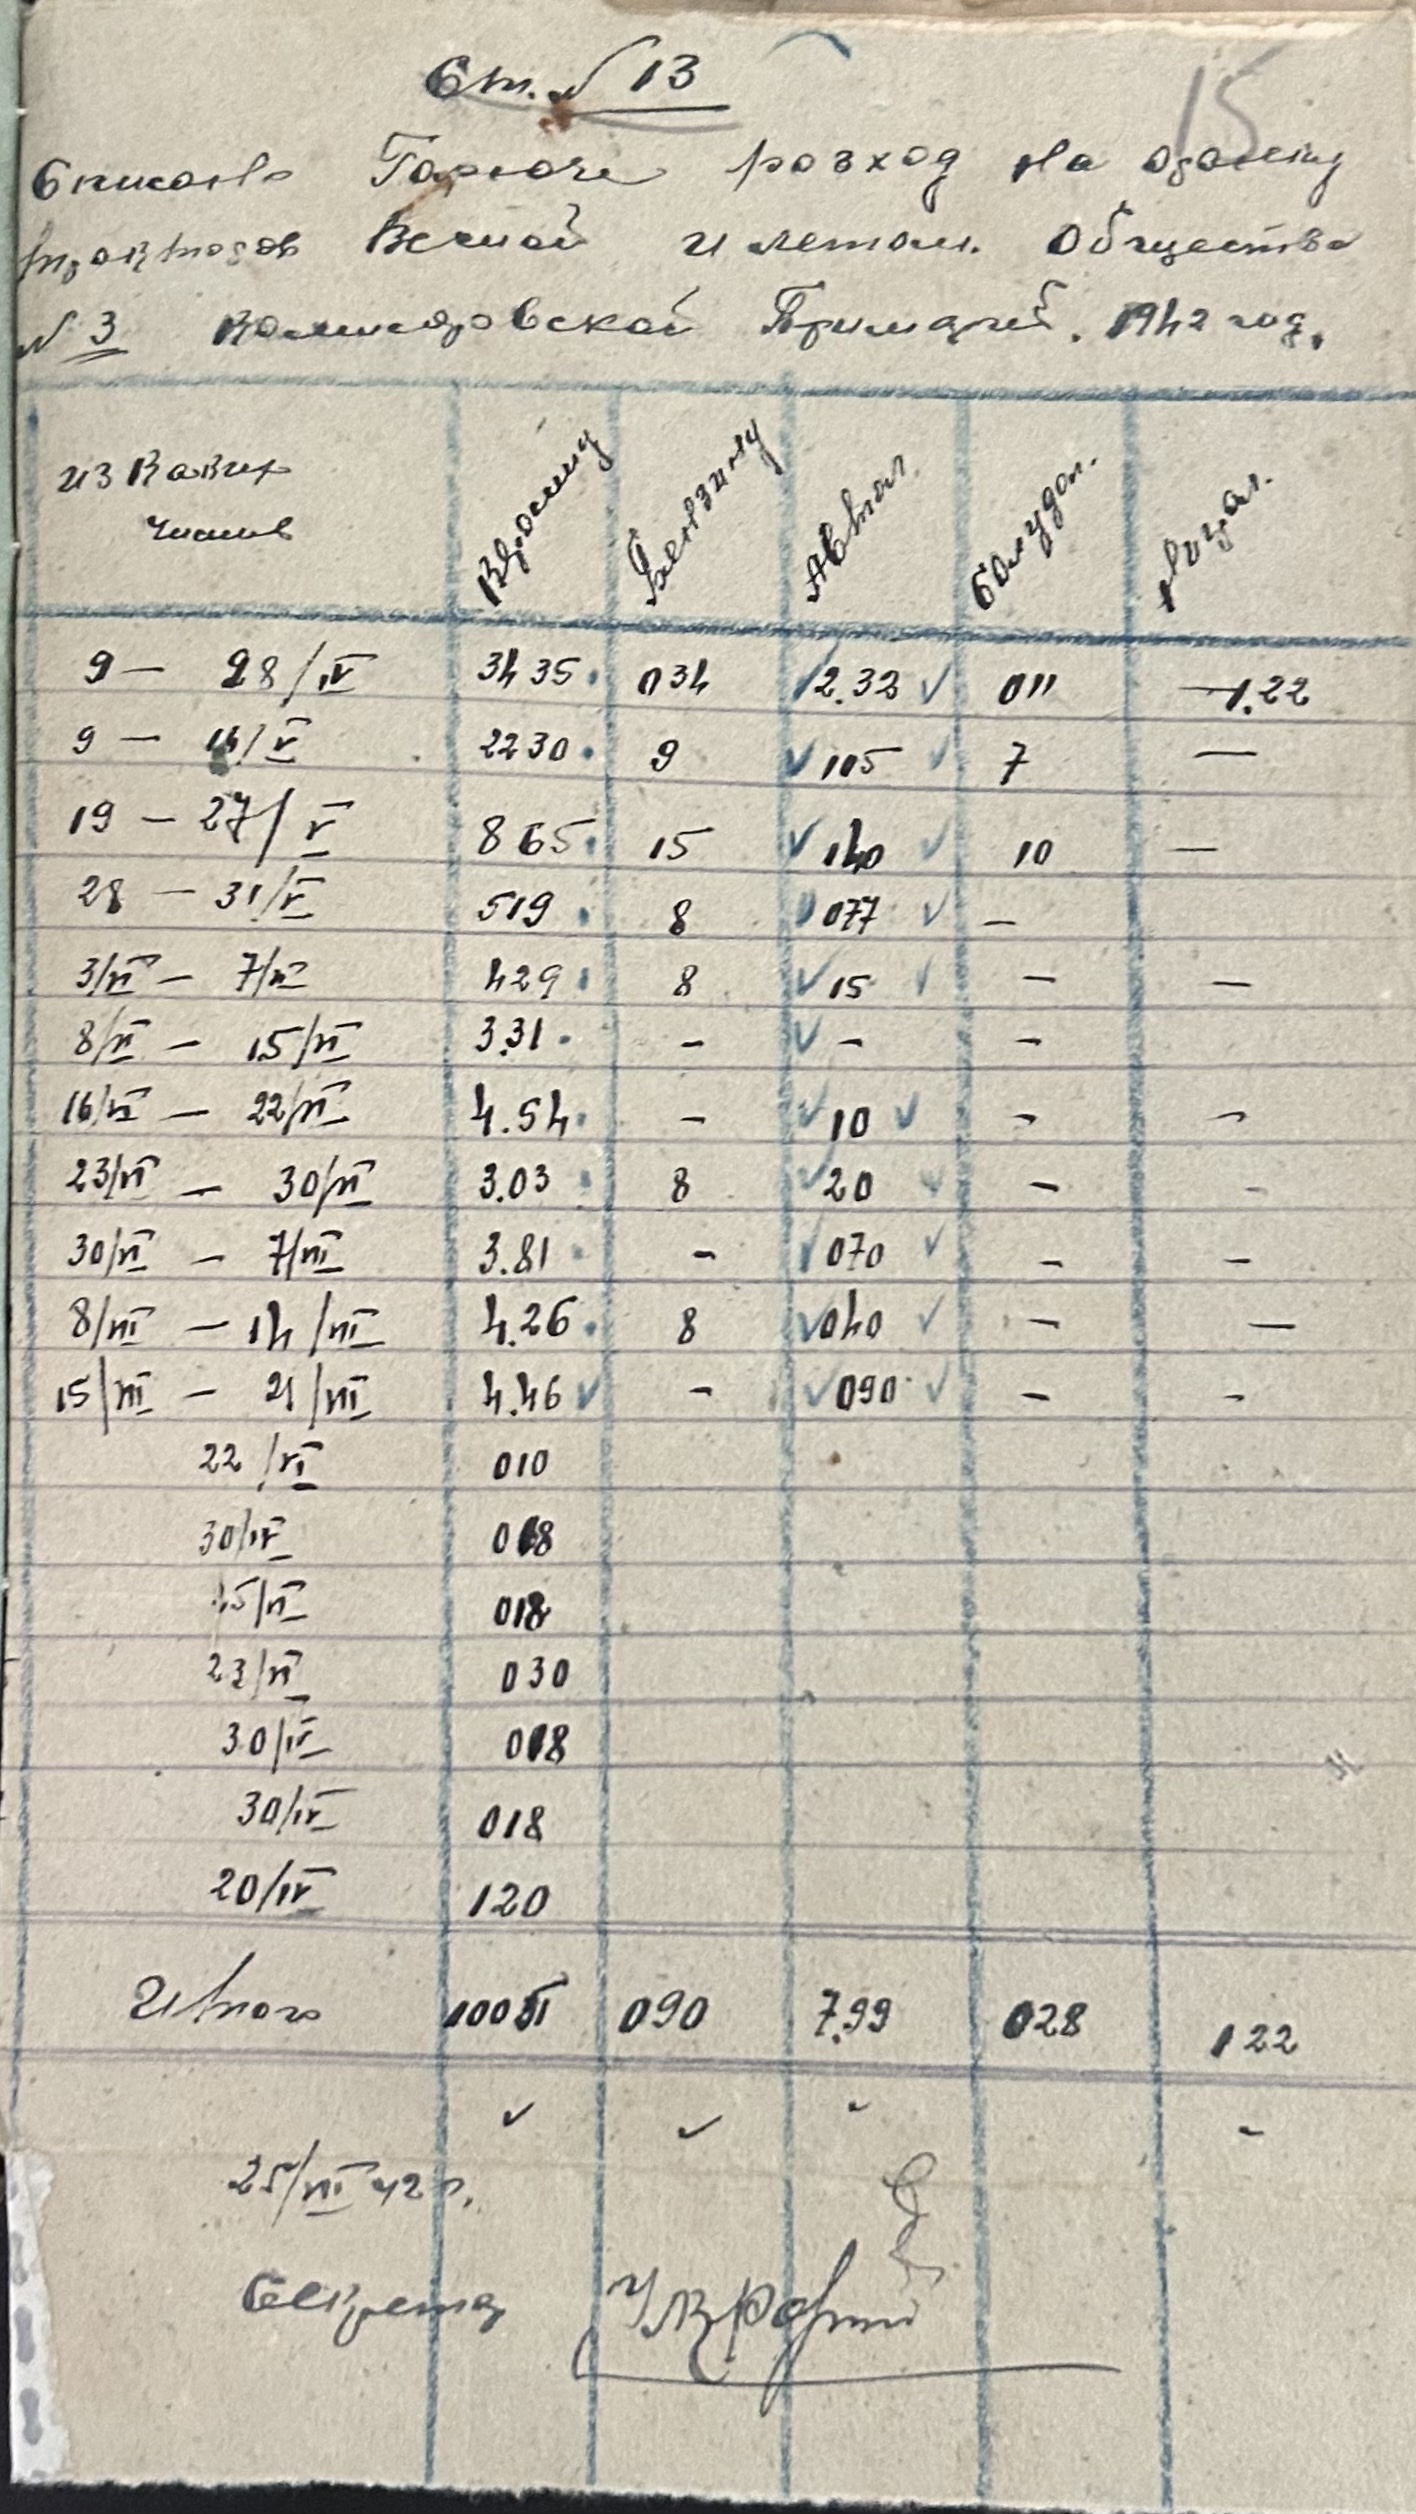 Ст. № 13
15
Списано Горюче розход на
тракторов Весной и летом. Общества
№ 3 Комисаровской Примарей. 1942 год.
из каких Керосину Бензину Автол. Солидол. Нигрол.
числ
9 — 28/IV 3435. 034 2.32 011 — 1.22
9 — 14/V 2230. 9 115 7 —
19 — 27/V 865. 15 140 10 —
28 — 31/V 519 8 077 —
3/VI — 7/VI 429 8 15 — —
8/VI — 15/VI 3.31. — — —
16/VI — 22/VI 4.54. — 10 — —
23/VI — 30/VI 3.03 8 20 — —
30/VI — 7/VII 3.81 — 070 — —
8/VII — 14/VII 4.26. 8 040 — —
15/VII — 21/VII 4.46 — 090 — —
22/VI 010
30/IV 018
15/VI 018
23/VI 030
30/IV 018
30/IV 018
20/IV 120
Итого 090 7.99 028 122
25/VII 42 г.
Секрета